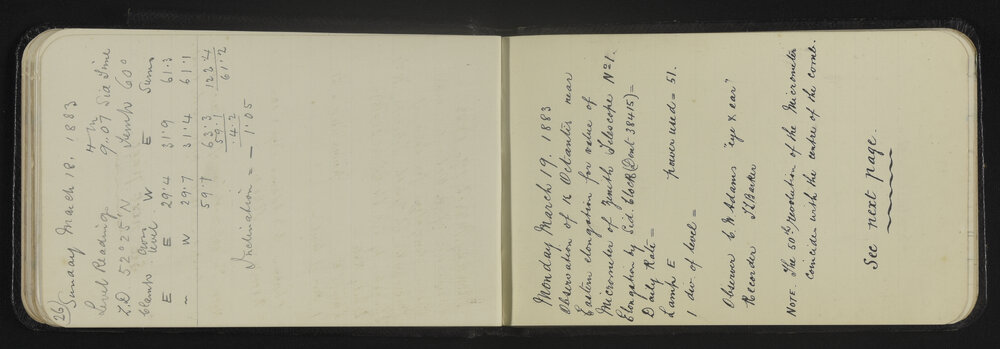 26 Sunday March 18. 1883
Level Readings 9h 07m Sid Time
Z.D 52° 25' N Temp 60°
Clamp Arm level W E Sums
E E 29.4 31.9 61.3
— W 29.7 31.4 61.1
59.1 63.3 122.4
59.1 61.2
4.2
Inclination — 1.05
Monday March 19. 1883
Observation of K Octantis near
Eastern elongation for value of
Micrometer of Zenith Telescope No 1.
Elongation by Sid. Clock (Dent 38415) =
Daily Rate =
Lamp E power used = 51.
1 div. of level =
Observer C W Adams "eye & ear"
Recorder Barker
NOTE. The 50th revolution of the Micrometer
coincides with the centre of the comb.
See next page.